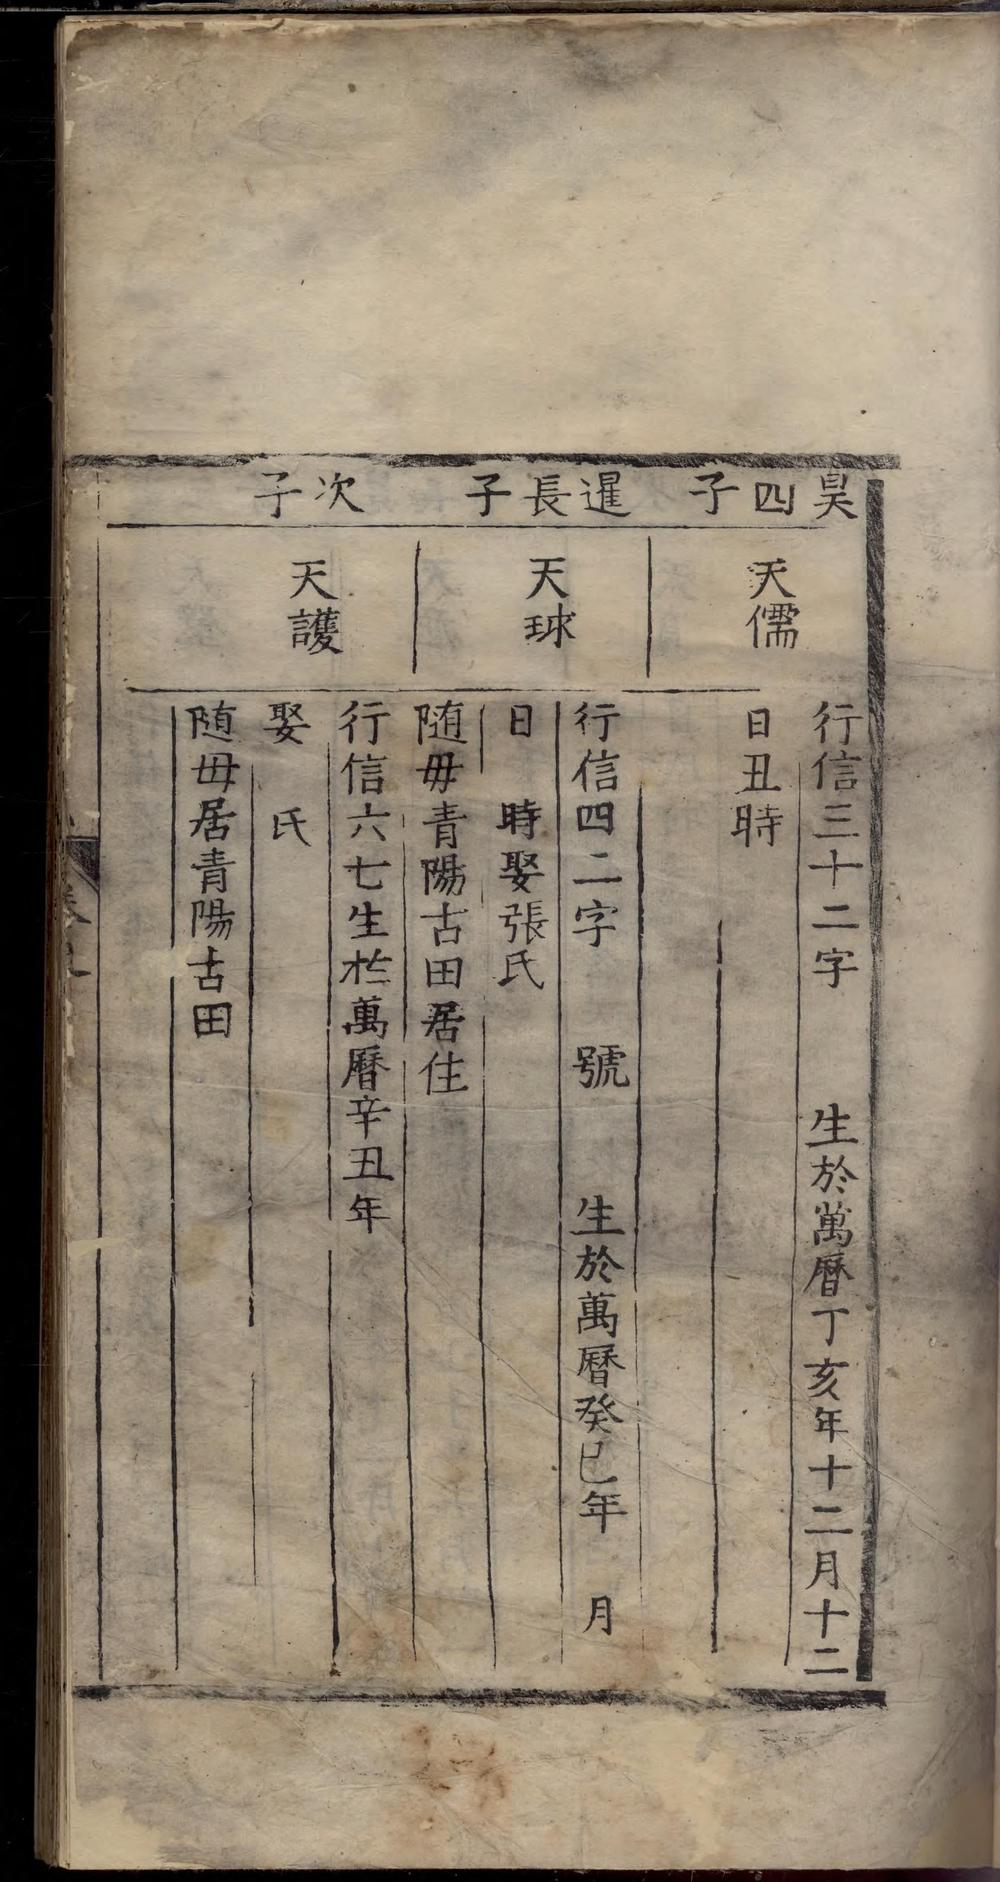 昊四子
天儒
行信三十二字　生於萬曆丁亥年十二月十二
日丑時
暹長子
天球
行信四二字　號　生於萬曆癸巳年　月
日　時娶張氏
随毋青陽古田居住
次子
天護
行信六七生於萬曆辛丑年
娶　氏
随毋居青陽古田